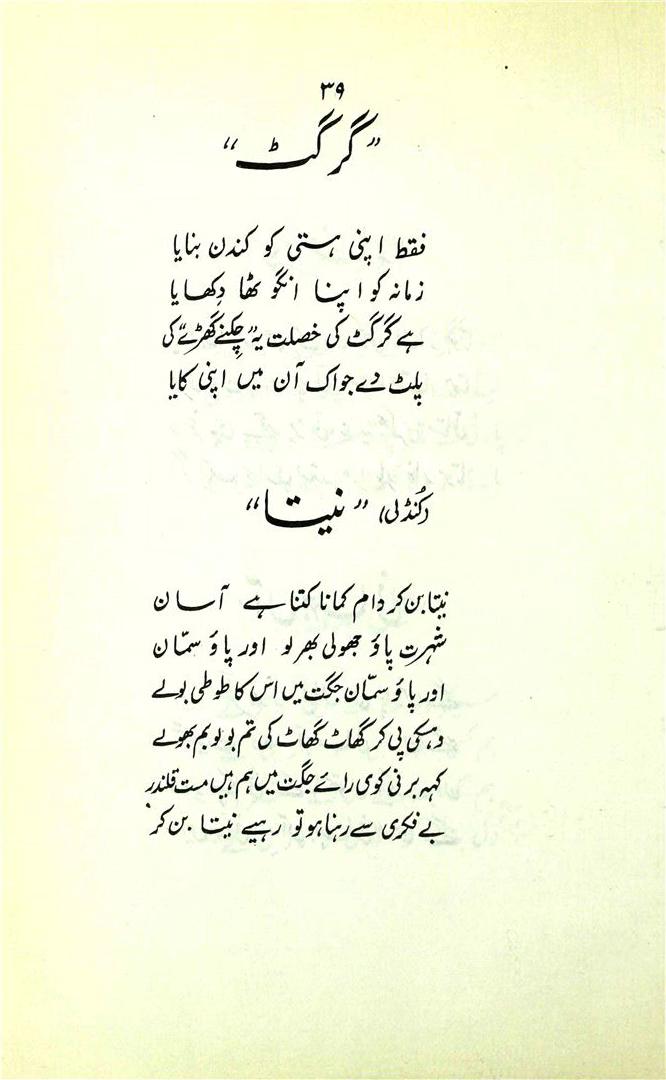 ۳۹
"گرگٹ"
فقط اپنی ہستی کو کندن بنایا
زمانہ کو اپنا انگوٹھا دِکھایا
ہے گرگٹ کی خصلت یہ "چکنے گھڑے" کی
پلٹ دے جو اک آن میں اپنی کایا
(کُنڈلی) "نیتا"
نیتا بن کر دام کمانا کتنا ہے آسان
شہرت پاؤ جھولی بھر لو اور پاؤ سمّان
اور پاؤ سمّان جگت میں اس کا طوطی بولے
وہسکی پی کر گھاٹ گھاٹ کی تم بولو بم بھولے
کہہ برنی کوی رائے جگت میں ہم ہیں مست قلندر
بے فکری سے رہنا ہو تو رہیے نیتا بن کر